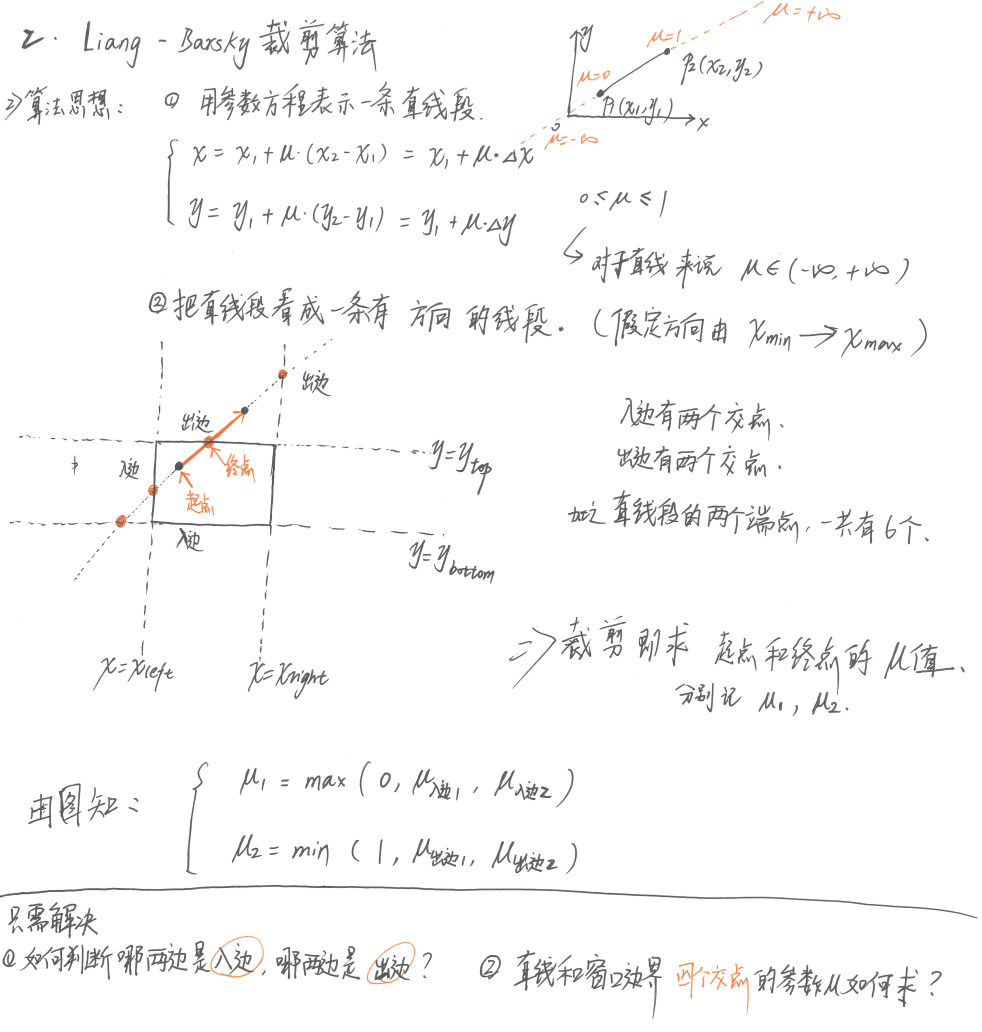 2. Liang-Barsky 裁剪算法
y
μ=1
μ=+∞
p₂(x₂,y₂)
μ=0
p₁(x₁,y₁)
0
x
μ=-∞
2) 算法思想: ① 用参数方程表示一条直线段.
x = x₁+μ·(x₂-x₁) = x₁+μ·△x
y = y₁+μ·(y₂-y₁) = y₁+μ·△y
0≤μ≤1
↳ 对于直线来说 μ∈(-∞,+∞)
② 把直线段看成一条有方向的线段. (假定方向由 xmin → xmax)
出边
出边
入边
终点
起点
入边
y=ytop
y=ybottom
x=xleft
x=xright
入边有两个交点.
出边有两个交点.
加之直线段的两个端点, 一共有6个.
=> 裁剪即求 起点和终点的μ值.
分别记 μ₁, μ₂.
由图知:
μ₁ = max (0, μ入边1, μ入边2)
μ₂ = min (1, μ出边1, μ出边2)
只需解决
① 如何判断哪两边是入边, 哪两边是出边?
② 直线和窗口边界四个交点的参数μ如何求?